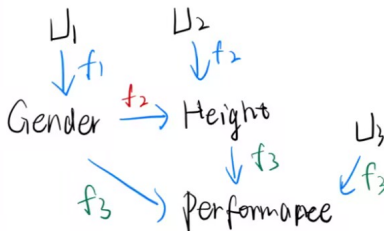 U₁ U₂
f₁ f₂
Gender f₂ Height U₃
f₃ f₃
f₃ performance